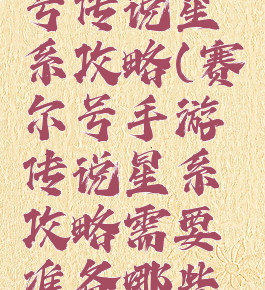 号传说星
系攻略(赛
尔号手游
传说星系
攻略需要
准备哪些